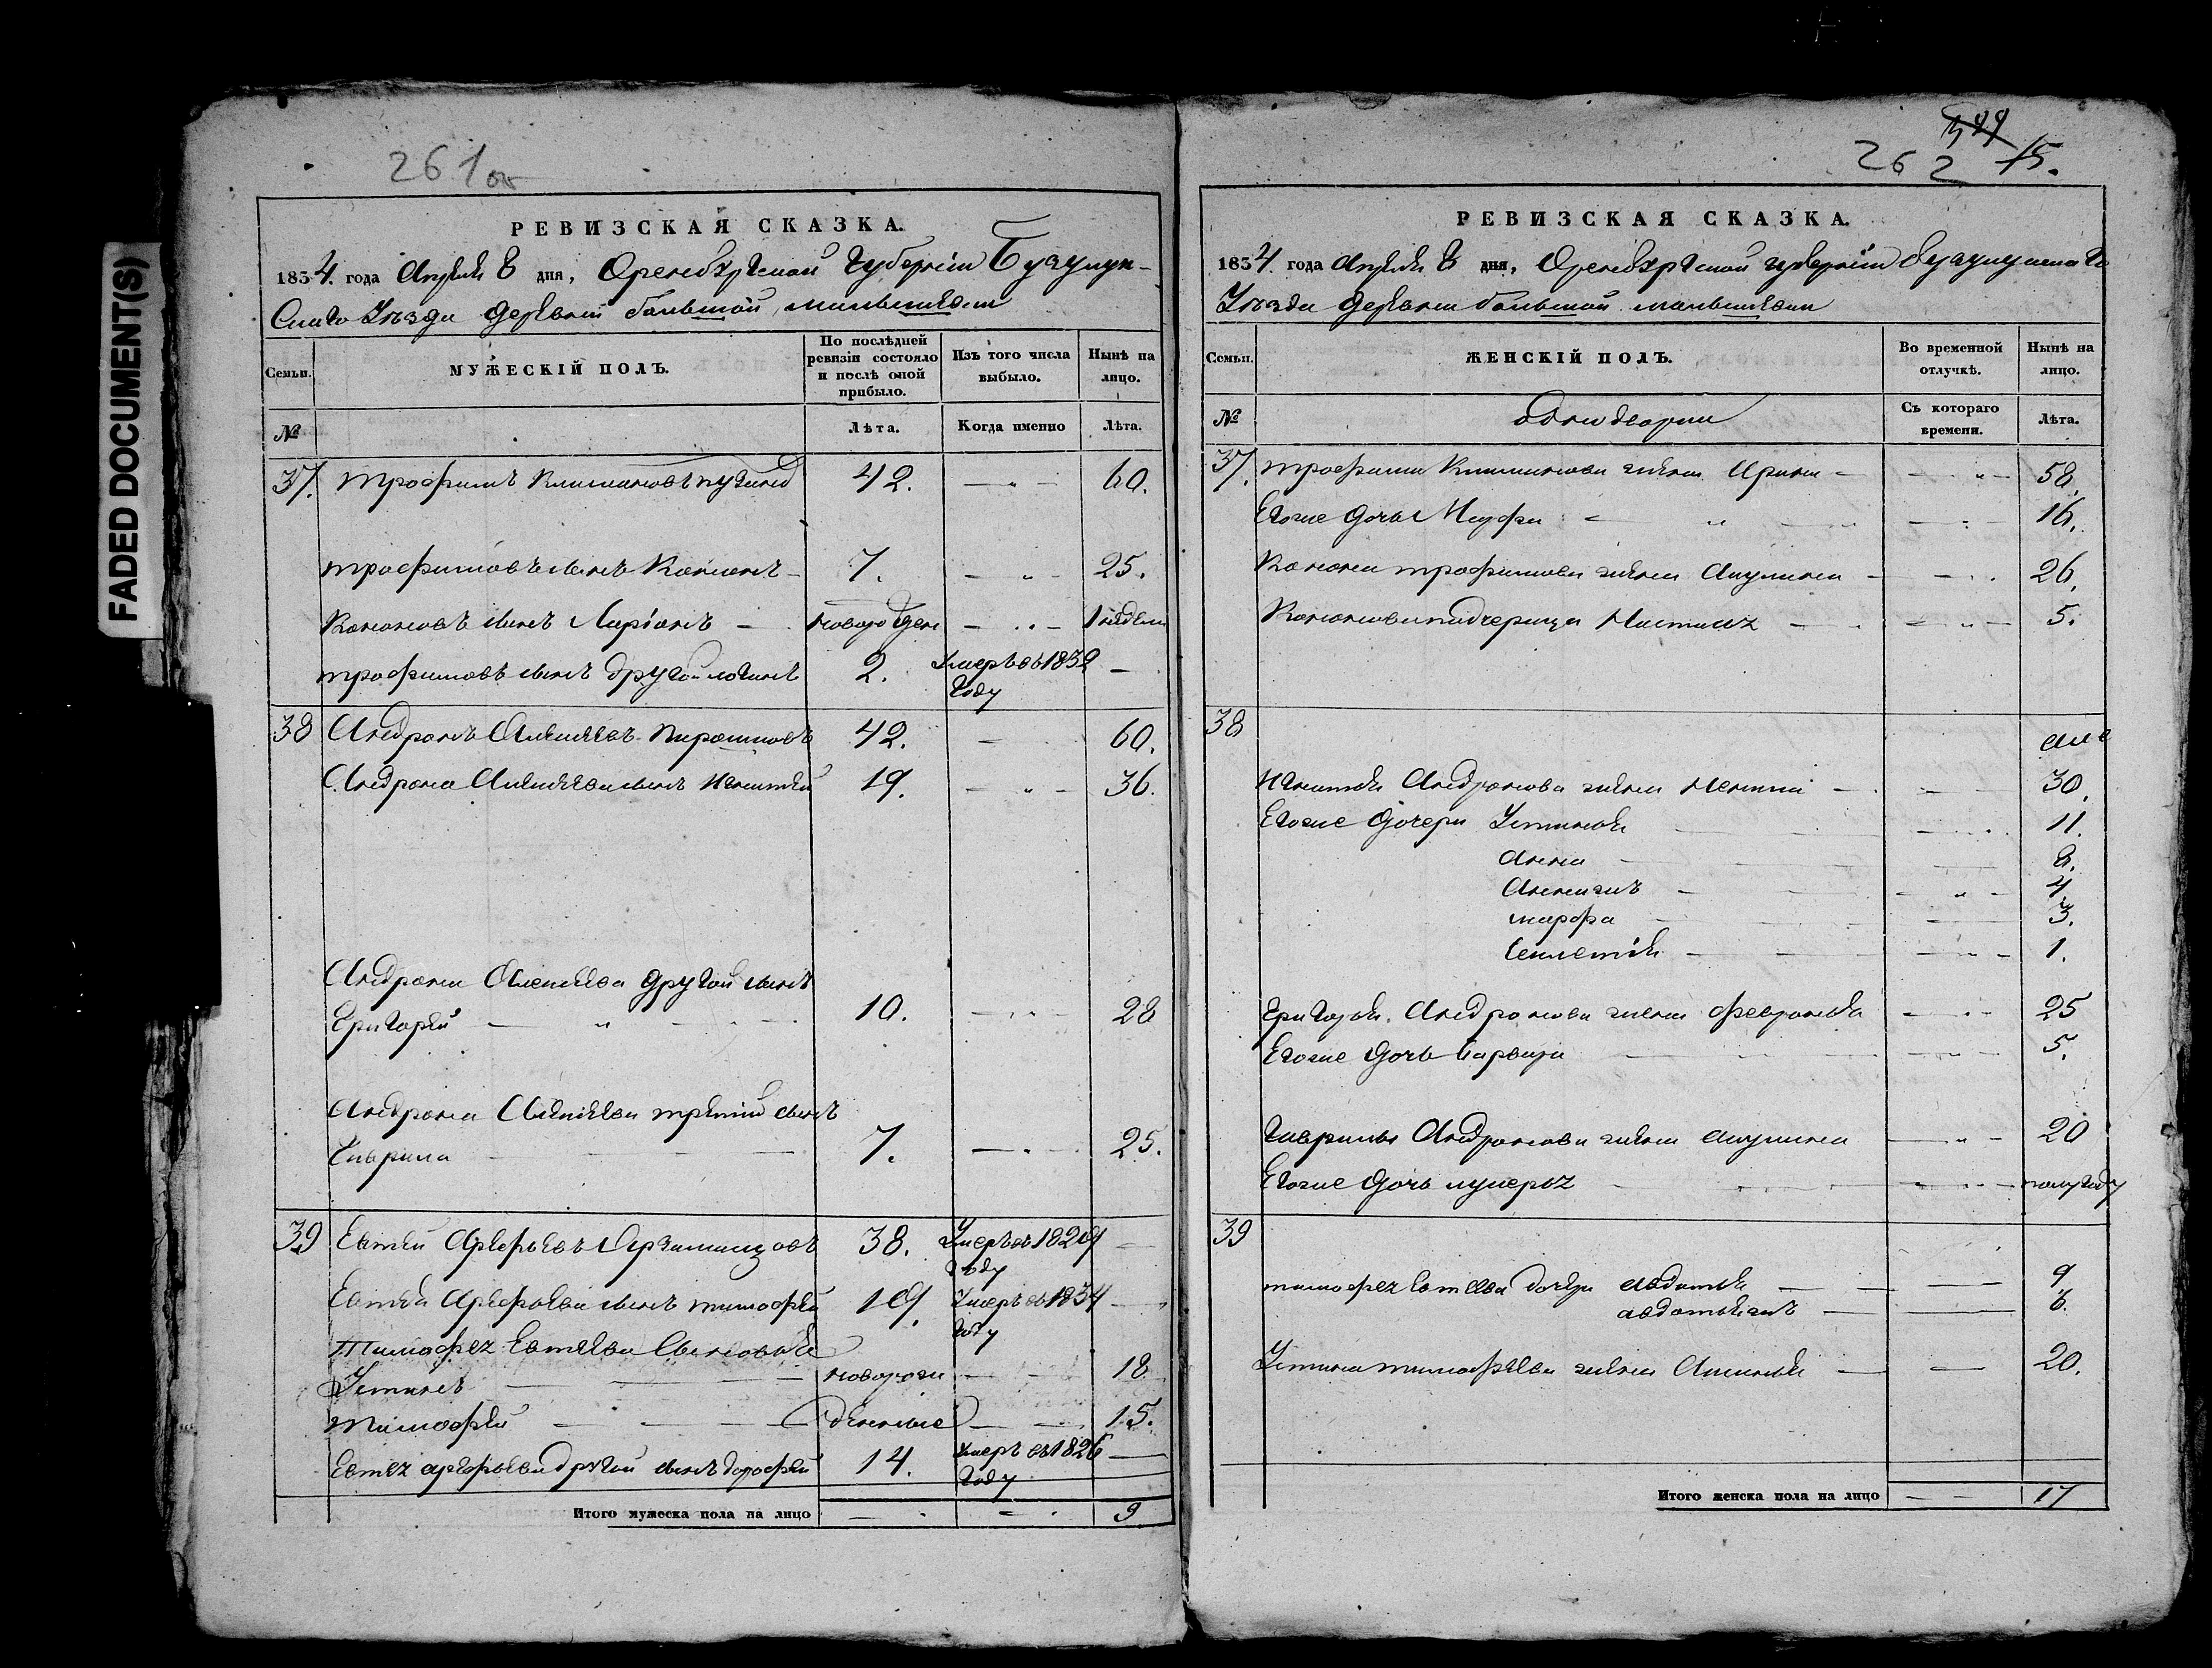 FADED DOCUMENT(S)
261 об
РЕВИЗСКАЯ СКАЗКА.
1834. года Апреля 8 дня, Оренбургской губернии Бузулук-
Скаго Уезда деревни большой малышевки
Семьи.
МУЖЕСКІЙ ПОЛЪ.
По послѣдней ревизіи состояло и послѣ оной прибыло.
Изъ того числа выбыло.
Нынѣ на лицо.
№
Лѣта.
Когда именно
Лѣта.
37. трофимъ Климановъ 42. 60.
трофимовъ сынъ Кононъ 7. 25.
Кононовъ сынъ Ларіонъ новорожден 1 недели
трофимовъ сынъ другой логинъ 2. Умеръ въ 1832 Году
38 Андронъ Алексеевъ 42. 60.
Андрона Алексеева сынъ Игнатей 19. 36.
Андрона Алексеева другой сынъ
Григорей 10. 28
Андрона Алексеева третий сынъ
Гаврила 7. 25.
39 Евтей Арефьевъ 38. Умеръ въ 1829 Году
Евтея Арефьева сынъ тимофей 19. Умеръ въ 1834 Году
Тимофея Евтеева Сыновья
Устинъ новорож 18
тимофей денные 15.
Евтея арефьева другой сынъ дорофей 14. Умеръ въ 1826 Году
Итого мужеска пола на лицо 9
262 15.
РЕВИЗСКАЯ СКАЗКА.
1834. года Апреля 8 дня, Оренбургской губернии бузулукскаго
Уезда деревни большой малышевки
Семьи.
ЖЕНСКІЙ ПОЛЪ.
Во временной отлучкѣ.
Нынѣ на лицо.
№
однодворки
Съ котораго времени.
Лѣта.
37. трофима Климанова жена Ирина 58
Егоже дочь 16.
Конона трофимова жена Акулина 26.
Кононова падчерица Настасья 5.
38
Игнатея Андронова жена 30.
Егоже дочери Устинья 11.
Анна 8.
Аннажъ 4.
марфа 3.
1.
Григорья Андронова жена Февронья 25
Егоже дочь варвара 5.
Гаврилы Андронова жена акулина 20
Егоже дочь лукерья полугоду
39
тимофея Евтеева дочери авдотья 9
авдотьяжъ 6.
Устина тимофеева жена Аксинья 20.
Итого женска пола на лицо 17